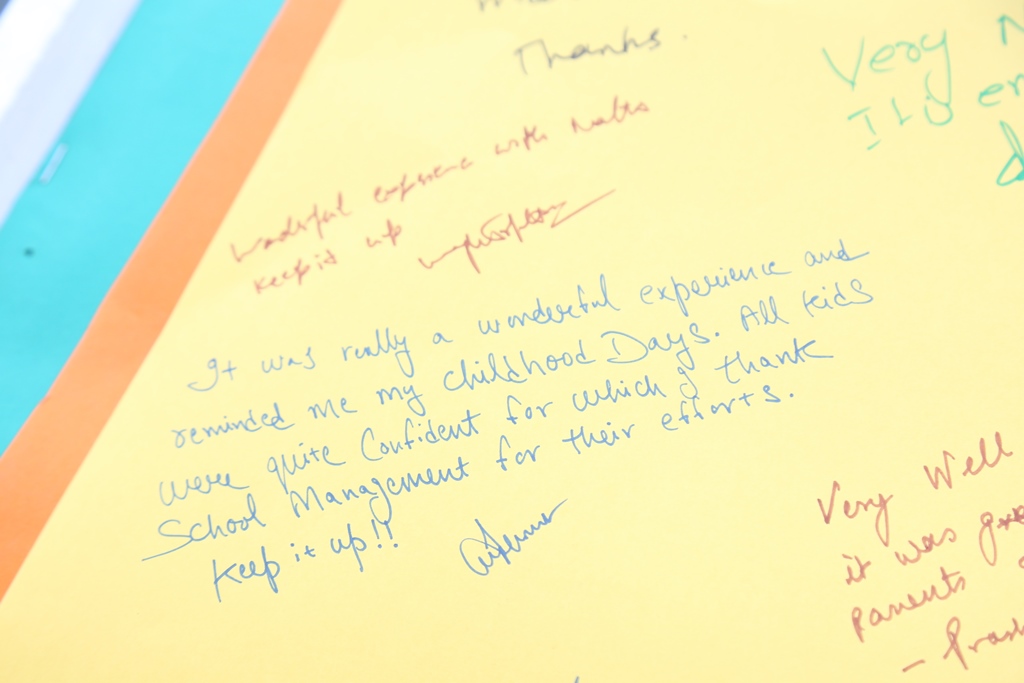 Thanks.
Very
ILU
Wonderful experience with
keep it up
It was really a wonderful experience and
reminded me my childhood Days. All kids
were quite Confident for which I thank
School Management for their efforts.
Keep it up!!
Very Well
it was
parents